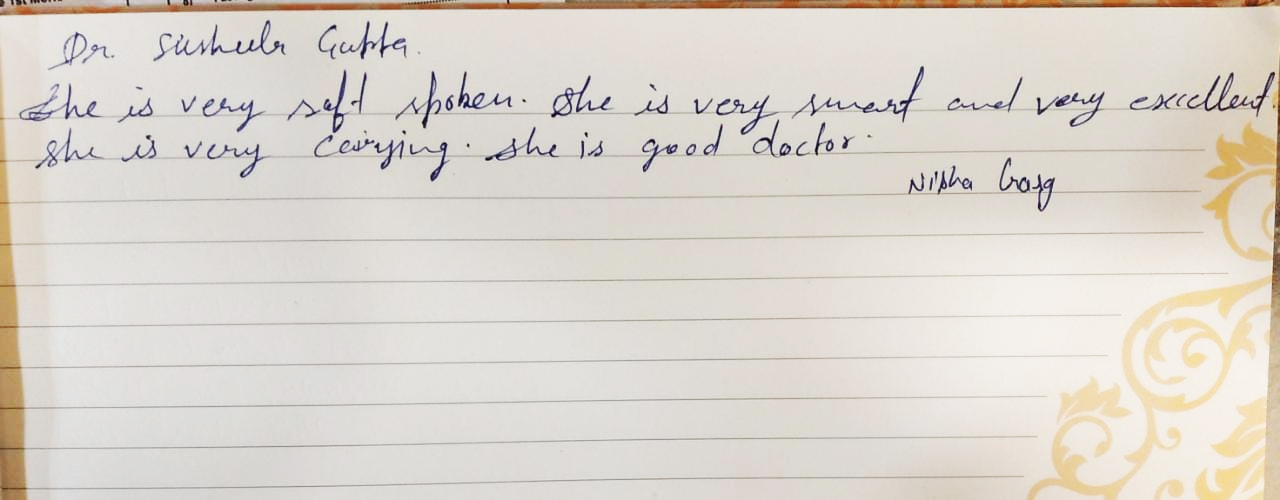 Dr. Susheela Gupta.
She is very soft spoken. She is very smart and very excellent.
She is very carying. She is good doctor.
Nisha Garg